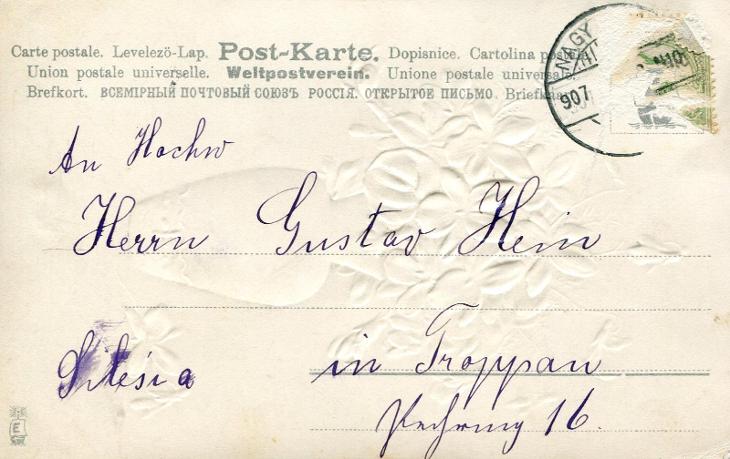 Carte postale. Levelező-Lap. Post-Karte. Dopisnice. Cartolina postale.
Union postale universelle. Weltpostverein. Unione postale universale.
Brefkort. ВСЕМІРНЫЙ ПОЧТОВЫЙ СОЮЗЪ РОССІЯ. ОТКРЫТОЕ ПИСЬМО. Briefkaa
NAGY
907
An Hochw
Herrn Gustav Hein
Silésia in Troppau
16.
E